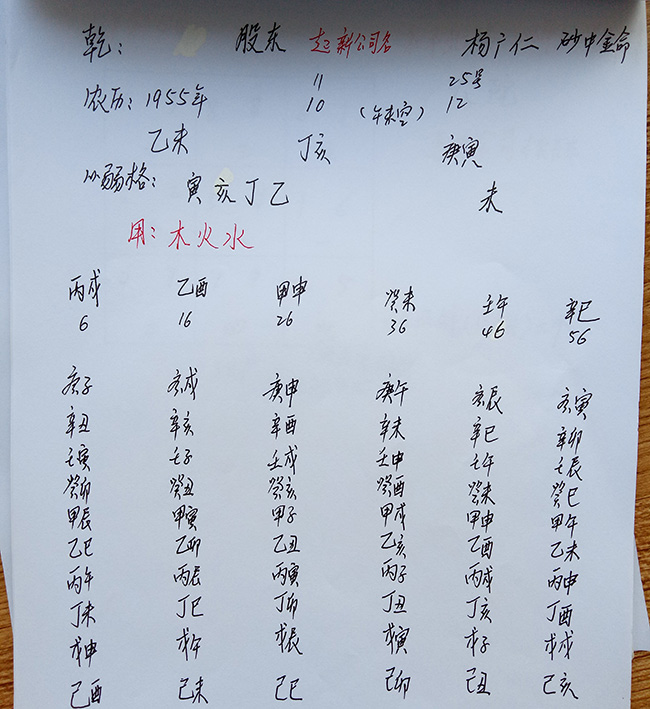 乾： 股东 起新公司名 杨广仁 砂中金命
11 25号
农历：1955年 10 （午未空） 12
乙未 丁亥 庚寅
从弱格： 寅亥丁乙 未
用：木火水
丙戌 乙酉 甲申 癸未 壬午 辛巳
6 16 26 36 46 56
庚子 庚戌 庚申 庚午 庚辰 庚寅
辛丑 辛亥 辛酉 辛未 辛巳 辛卯
壬寅 壬子 壬戌 壬申 壬午 壬辰
癸卯 癸丑 癸亥 癸酉 癸未 癸巳
甲辰 甲寅 甲子 甲戌 甲申 甲午
乙巳 乙卯 乙丑 乙亥 乙酉 乙未
丙午 丙辰 丙寅 丙子 丙戌 丙申
丁未 丁巳 丁卯 丁丑 丁亥 丁酉
戊申 戊午 戊辰 戊寅 戊子 戊戌
己酉 己未 己巳 己卯 己丑 己亥